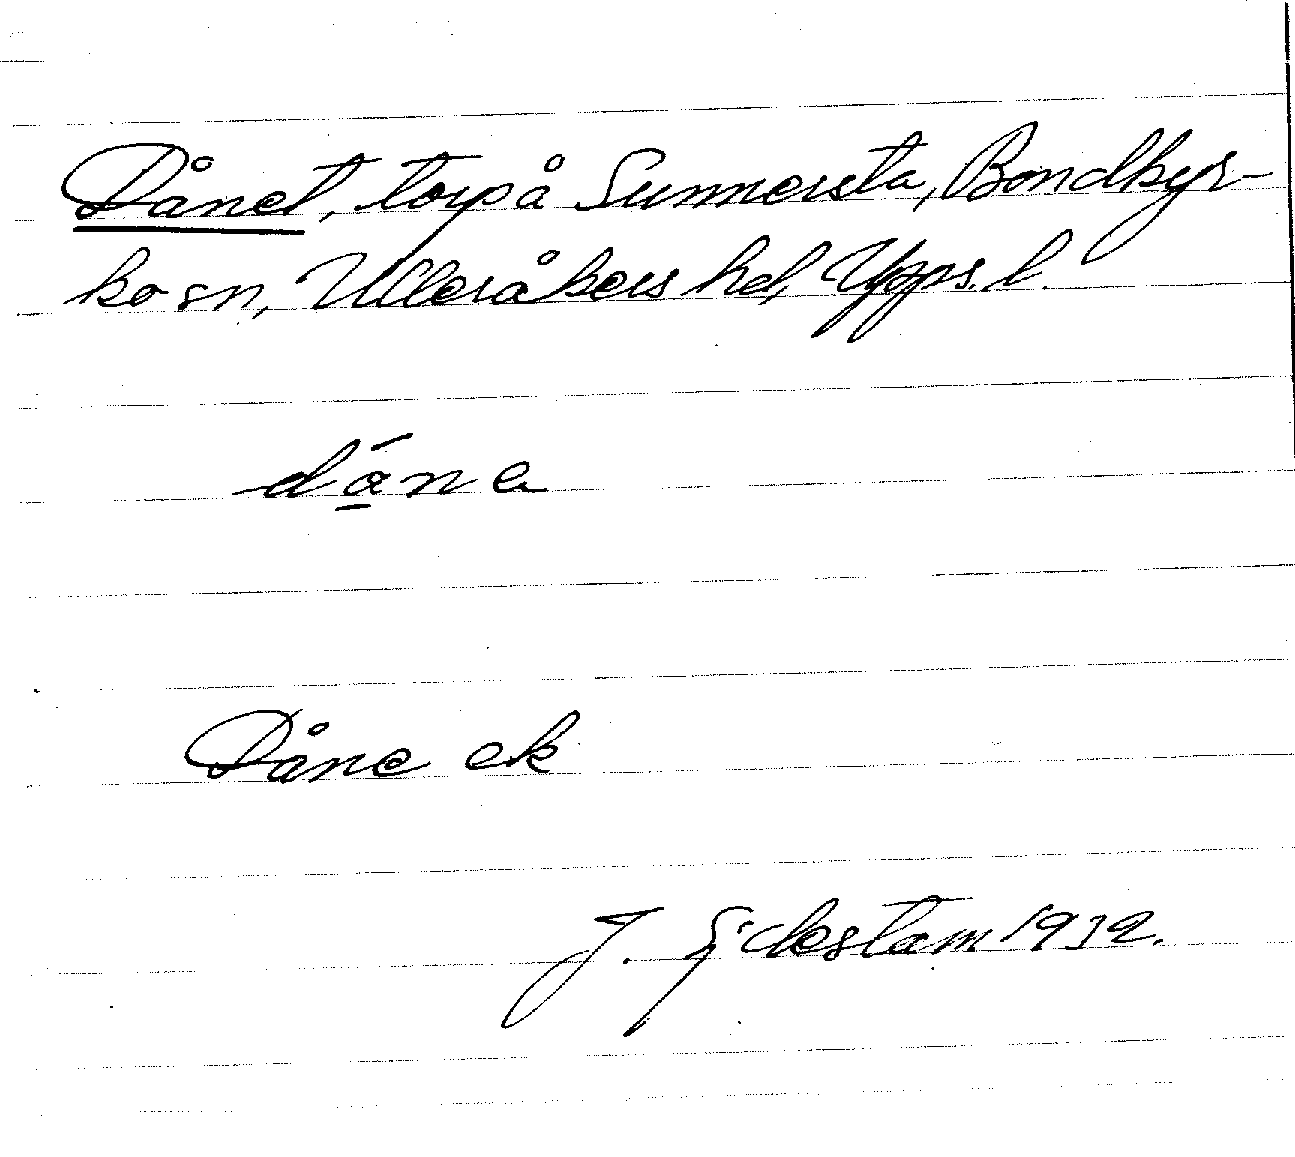 Dånet, torp å Sunnersta, Bondkyr-
ko sn, Ulleråkers hd, Upps. l.
då̱ne
Dåne ek
J. 1932.